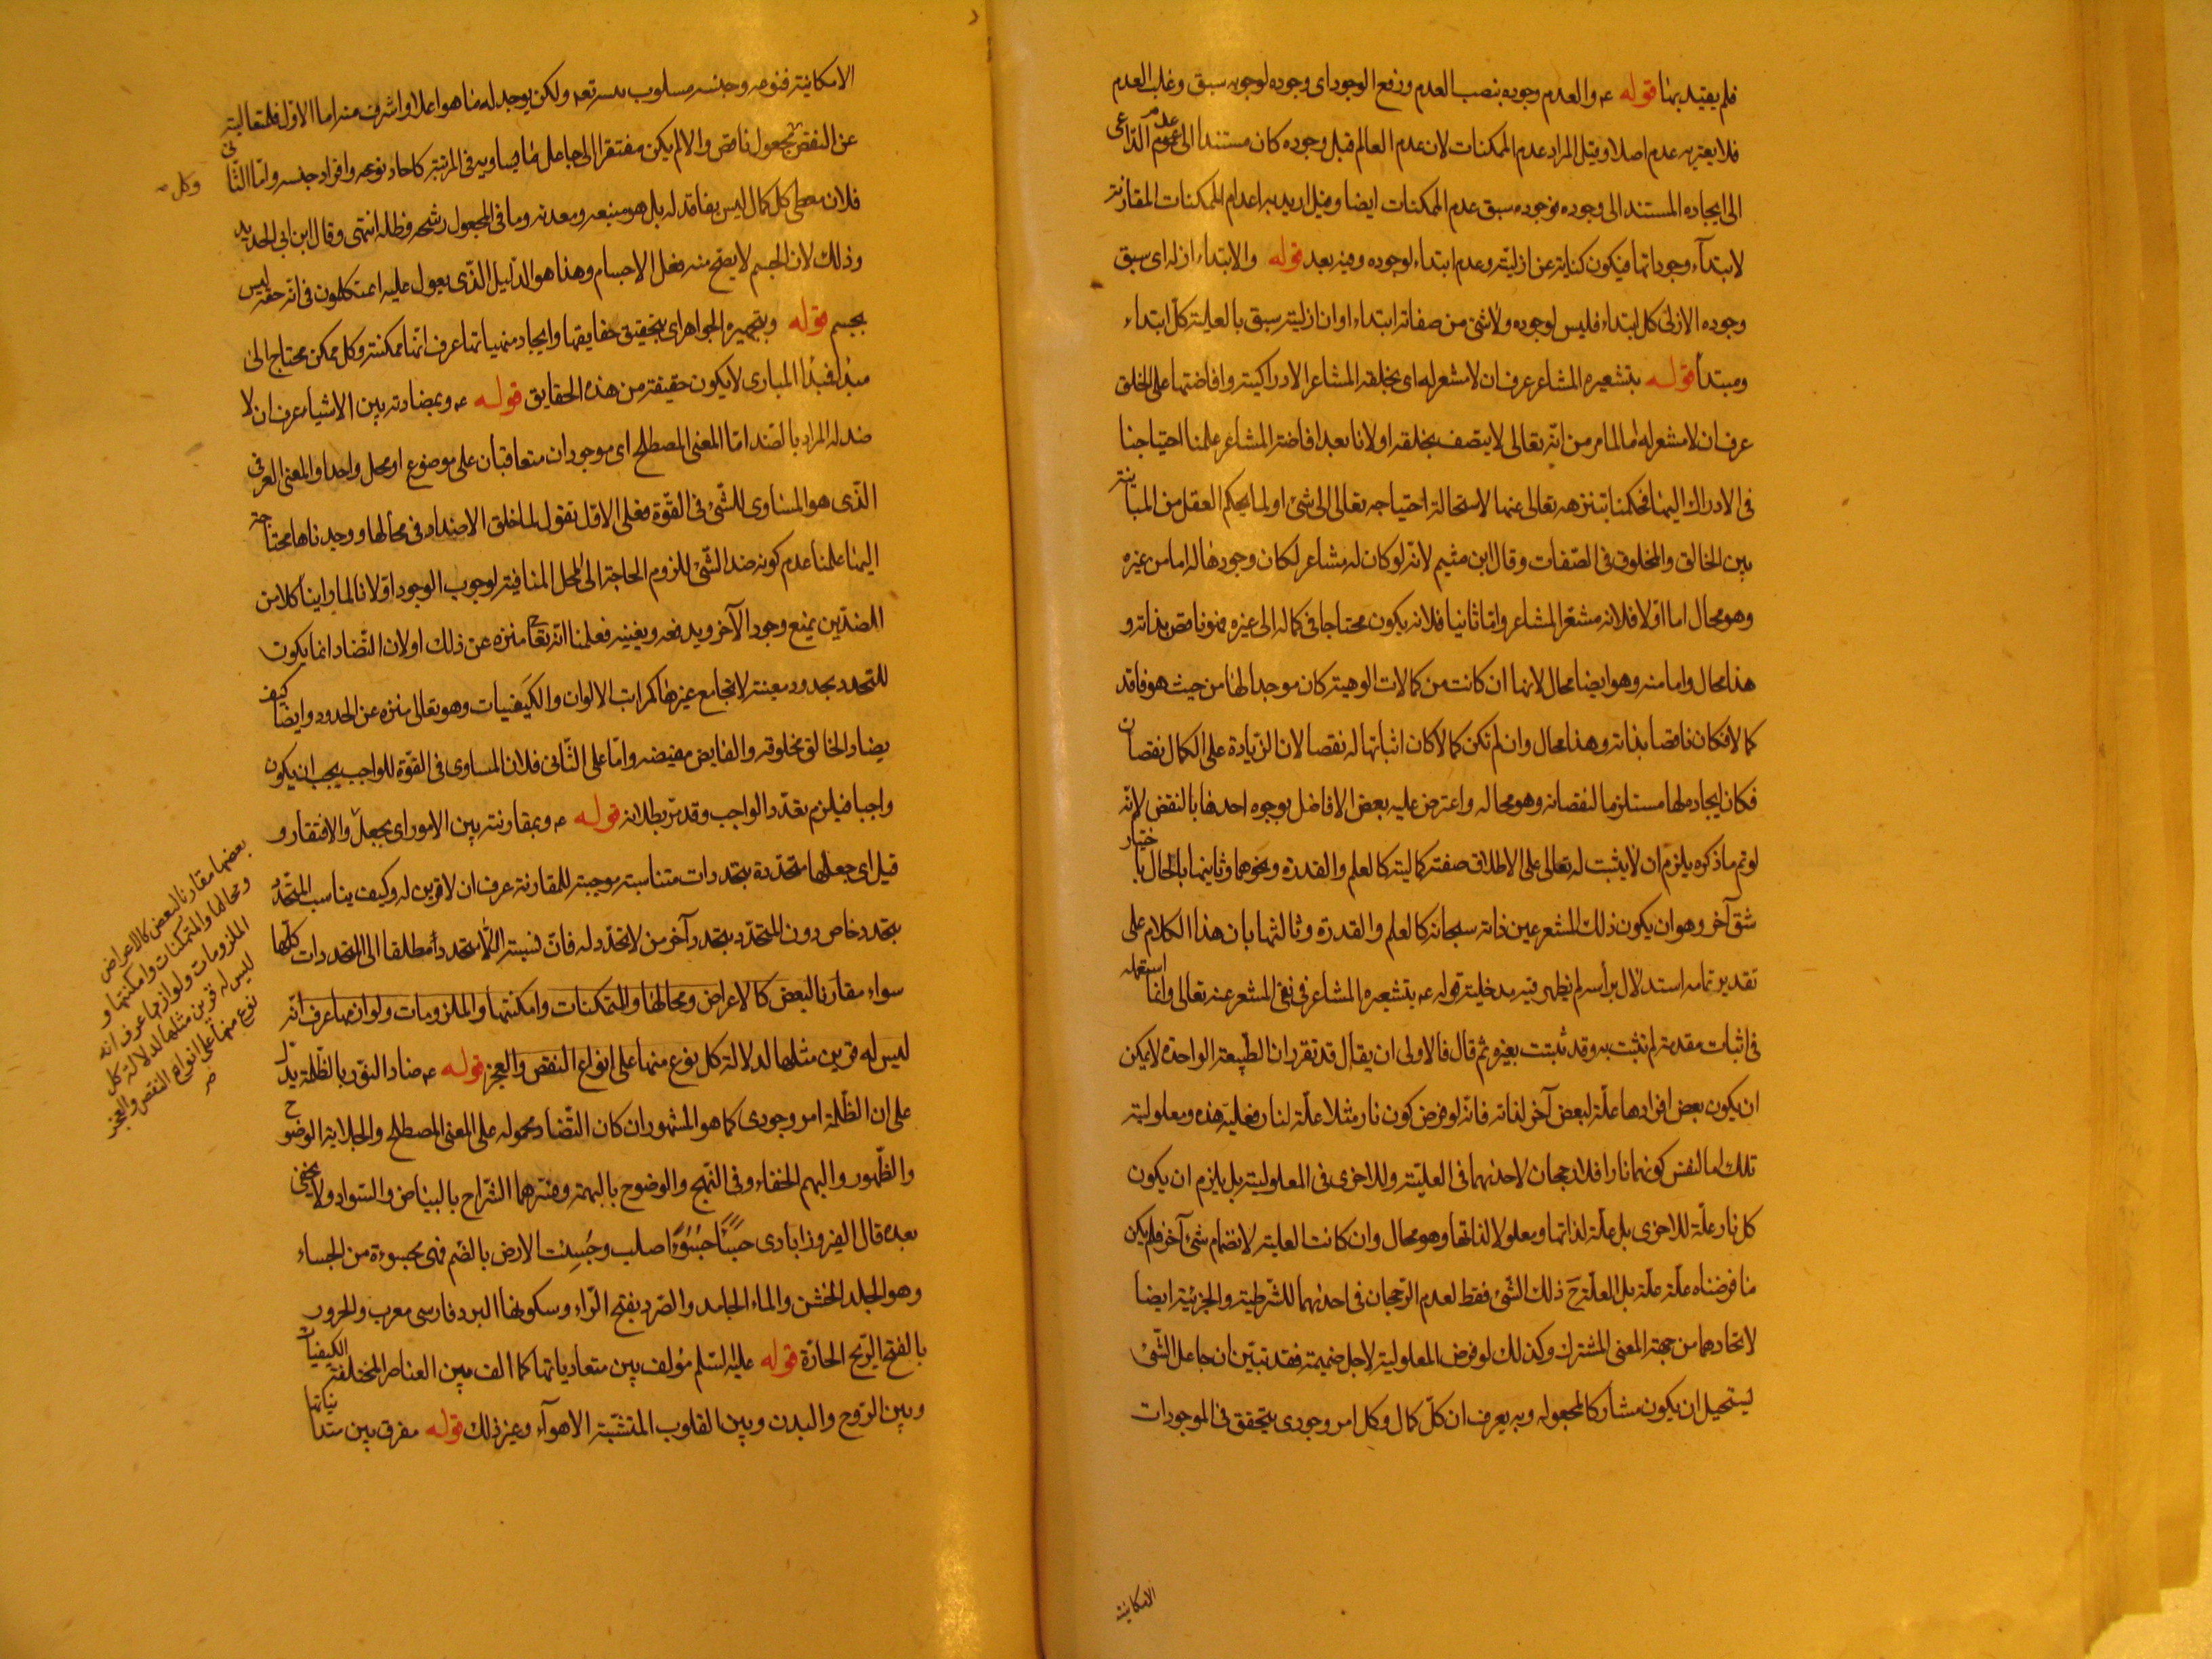 فلم يقيد بها قوله عه والعدم وجوده بنصب العدم ورفع الوجود اى وجوده لوجوبه سبق وغلب العدم
فلا يعتريه عدم اصلا وقيل المراد عدم الممكنات لان عدم العالم قبل وجوده كان مستندا الى عدم الدّاعى
الى ايجاده المستند الى وجوده فوجوده سبق عدم الممكنات ايضا وقيل اريد به اعدام الممكنات المقارنة
لابتدآء وجوداتها فيكون كناية عن ازليته وعدم ابتداء لوجوده وفيه بعد قوله والابتداء ازله اى سبق
وجوده الازلى كل ابتداء فليس لوجوده ولا شئ من صفاته ابتداء او ان ازليته سبق بالعلية كلّ ابتداء
ومبتدأ قوله بتشعيره المشاعر عرف ان لا مشعر له اى بخلقه المشاعر الادراكية وافاضتها على الخلق
عرف ان لا مشعر له اما لما مر من انّه تعالى لا يتصف بخلقه او لانا بعد افاضة المشاعر علمنا احتياجنا
فى الادراك اليها فحكمنا بتنزهه تعالى عنها لاستحالة احتياجه تعالى الى شئ او لما يحكم العقل من المباينة
بين الخالق والمخلوق فى الصّفات وقال ابن ميثم لانّه لو كان له مشاعر لكان وجودها له اما من غيره
وهو محال اما اوّلا فلانه مشعّر المشاعر وامّا ثانيا فلانه يكون محتاجا فى كماله الى غيره فهو ناقص بذاته و
هذا محال واما منه وهو ايضا محال لانها ان كانت من كمالات الوهيته كان موجدا لها من حيث هو فاقد
كمالا فكان ناقصا بذاته وهذا محال وان لم تكن كمالا كان اثباتها له نقصا لان الزّيادة على الكمال نقصان
فكان ايجاده لها مستلزما لنقصانه وهو محال واعترض عليه بعض الافاضل بوجوه احدها بالنقض لانّه
لو تم ما ذكره يلزم ان لا يثبت له تعالى على الاطلاق صفة كمالية كالعلم والقدرة ونحوهما وثانيها بالحال باختيار
شق آخر وهو ان يكون ذلك المشعر عين ذاته سبحانه كالعلم والقدرة وثالثها بان هذا الكلام على
تقدير تمامه استدلال برأسه لم يظهر فيه مدخلية قوله عه بتشعيره المشاعر فى نفى المشعر عنه تعالى وانما استعمله
فى اثبات مقدمة لم تثبت به وقد ثبتت بغيره ثم قال فالاولى ان يقال قد تقرر ان الطّبيعة الواحدة لا يمكن
ان يكون بعض افرادها علّة لبعض آخر لذاته فانّه لو فرض كون نار مثلا علّة لنار فعليّة هذه ومعلولية
تلك اما لنفس كونهما نارا فلا رجحان لاحدهما فى العليّة وللاخرى فى المعلولية بل يلزم ان يكون
كل نار علّة للاخرى بل علّة لذاتها ومعلولا لذاتها وهو محال وان كانت العلية لانضمام شئ آخر فلم يكن
ما فرضناه علّة علّة بل العلّة ح ذلك الشّئ فقط لعدم الرّجحان فى احدهما للشّرطية والجزئية ايضا
لاتحادهما من جهة المعنى المشترك وكذلك لو فرض المعلولية لاجل ضميمة فقد تبيّن ان جاعل الشّئ
يستحيل ان يكون مشاركا لمجعوله وبه يعرف ان كلّ كمال وكل امر وجودى يتحقق فى الموجودات
الامكانية
الامكانية فنوعه وجنسه مسلوب عنه تعه ولكن يوجد له ما هو اعلا واشرف منه اما الاوّل فلتعاليه
عن النقص وكل مجعول ناقص والا لم يكن مفتقرا الى جاعل ما يساويه فى المرتبة كآحاد نوعه وافراد جنسه وامّا الثّانى
فلان معطى كل كمال ليس بفاقد له بل هو منبعه ومعدنه وما فى المجعول رشحه وظله انتهى وقال ابن ابى الحديد
وذلك لان الجسم لا يصحّ منه فعل الاجسام وهذا هو الدّليل الذّى يعول عليه المتكلمون فى انّه حقه ليس
بجسم قوله وبتجهيره الجواهر اى بتحقيق حقايقها وايجاد مهياتها عرف انّها ممكنة وكل ممكن محتاج الى
مبدأ فمبدأ المبادى لا يكون حقيقة من هذه الحقايق قوله عه وبمضادته بين الاشياء عرف ان لا
ضد له المراد بالضّد امّا المعنى المصطلح اى موجودان متعاقبان على موضوع او محل واحد او المعنى العرفى
الذّى هو المساوى للشّئ فى القّوة فعلى الاوّل نقول لما خلق الاضداد فى محالها ووجدناها محتاجة
اليها علمنا عدم كونه ضد الشّئ للزوم الحاجة الى المحل المنافية لوجوب الوجود او لانا لما راينا كلا من
الضدّين يمنع وجود الآخر ويدفعه ويفنيه فعلمنا انّه تعا منزه عن ذلك او لان التّضاد انما يكون
للتحدد بحدود معينة لا تجامع غيرها كمراتب الالوان والكيفيات وهو تعالى منزه عن الحدود وايضا كيف
يضاد الخالق مخلوقه والفايض مفيضه وامّا على الثّانى فلان المساوى فى القوّة للواجب يجب ان يكون
واجبا فيلزم تعدّد الواجب وقد مرّ بطلانه قوله عه وبمقارنته بين الامور اى بجعل والافتقار و
قيل اى جعلها متحدّدة بتحددات متناسبة موجبة للمقارنة عرف ان لا قرين له وكيف يناسب المتحدّد
بتحدد خاص دون المتحدّد بتحدد آخر من لا تحدّد له فانّ نسبة اللّا متحدد مطلقا الى التحددات كلّها
سواء مقارنا لبعض كالاعراض ومحالها والمتمكنات وامكنتها والملزومات ولوازمها عرف انّه
ليس له قرين مثلها لدلالة كل نوع منها على انواع النقص والعجز قوله عه ضاد النّور بالظّلمة يدل
على ان الظّلمة امر وجودى كما هو المشهور ان كان التّضاد محموله على المعنى المصطلح والجلاية الوضوح
والظّهور والبهم الخفاء وفى النّهج والوضوح بالبهمة وفسّرهما الشّراح بالبياض والسّواد ولا يخفى
بعده قال الفيروزابادى جسأ جسوءًا صلب وجُسِئت الارض بالضّم فهى مجسوءة من الجساء
وهو الجلد الخشن والماء الجامد والصّرد بفتح الرّاء وسكونها البرد فارسى معرب والحرور
بالفتح الرّيح الحارّة قوله عليه السّلم مؤلف بين متعادياتها كما الف بين العناصر المختلفة الكيفيات
وبين الرّوح والبدن وبين القلوب المتشتّتة الاهوآء وغير ذلك قوله مفرق بين متدانياتها
بعضها مقارنا لبعض كالاعراض
ومحالها والمتمكنات وامكنتها و
الملزومات ولوازمها عرف انه
ليس له قرين مثلها لدلالة كل
نوع منها على انواع النقص والعجز